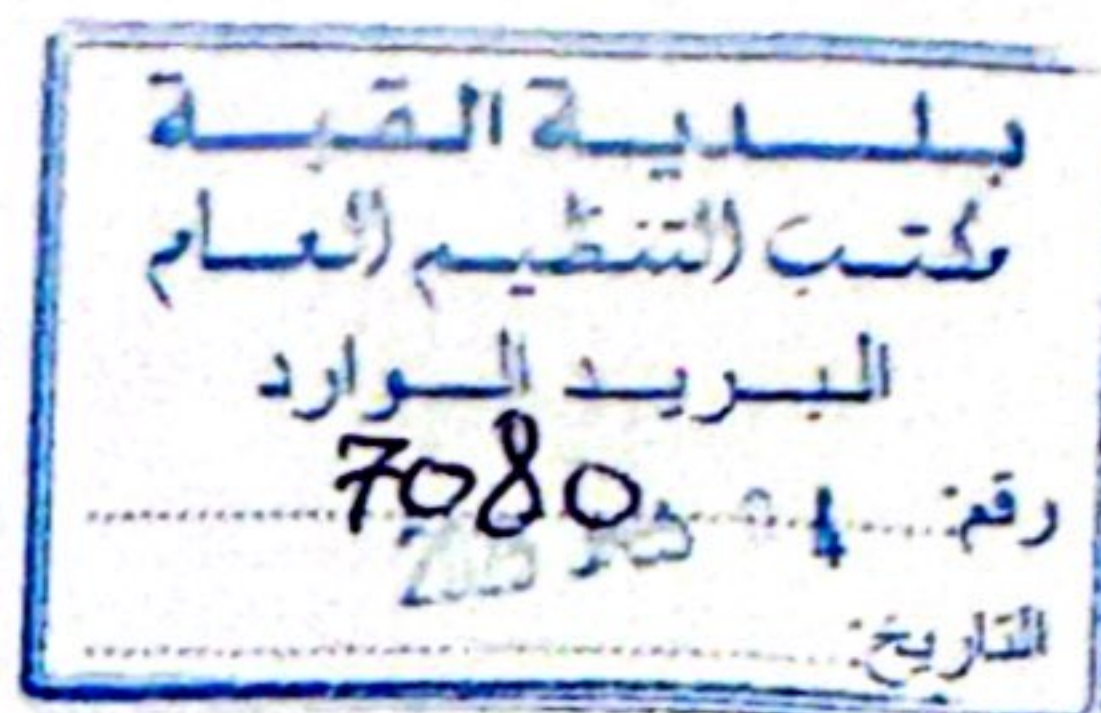 بلدية القبة
مكتب التنظيم العام
البريد الوارد
رقم: 7080
التاريخ: